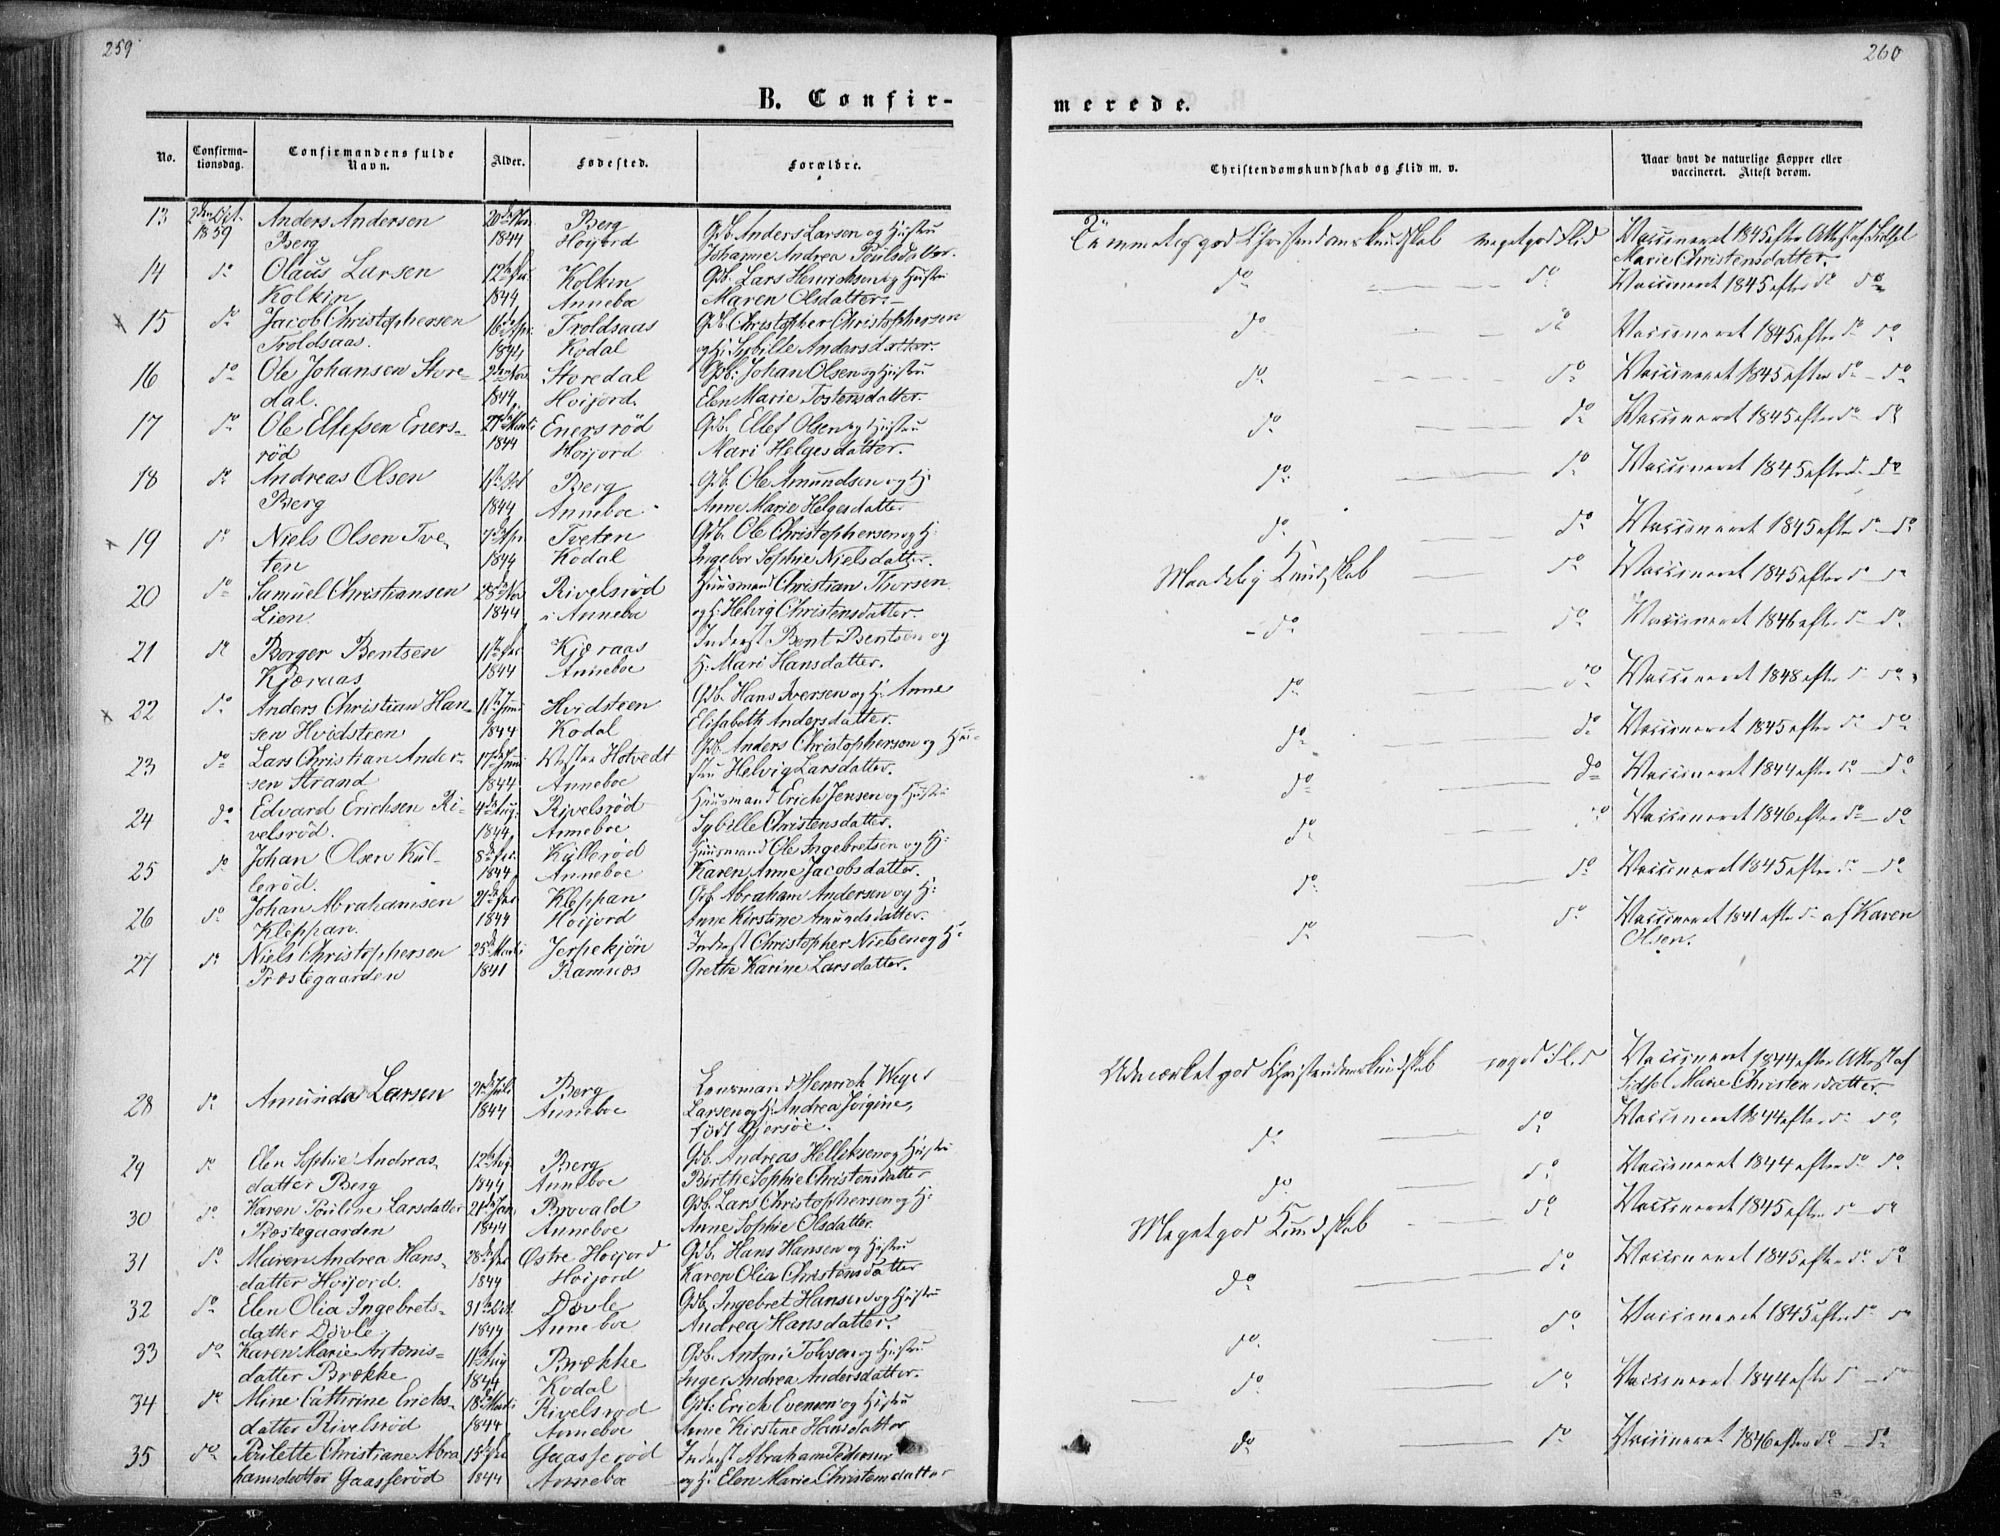 259
260
B. Confir-
merede.
No.
Confirma-
tionsdag.
Confirmandens fulde
Navn.
Alder.
Fødested.
Forældre.
Christendomskundskab og Flid m. v.
Naar havt de naturlige Kopper eller
vaccineret. Attest derom.
13 2den Oct. 1859 Anders Andersen Berg 1844 Berg Høijord Gdb. Anders Larsen og Hustru Johanne Andrea Poulsdatter. god Christendomskundskab meget god Flid Vaccineret 1845 efter Attest af Sidsel Marie Christensdatter.
14 do Olaus Larsen Kolkin 12te Febr 1844 Kolkin Anneboe Gdb. Lars Henrichsen og Hustru Maren Olsdatter. do do Vaccineret 1845 efter do do
15 do Jacob Christophersen Troldsaas. 16de Apr 1844 Troldsaas Kodal Gdb. Christopher Christophersen og H. Sybille Andersdatter. do do Vaccineret 1845 efter do do
16 do Ole Johansen Storedal. 2den Nov 1844 Storedal Høijord. Gdb. Johan Olsen og Hustru Elen Marie Tostensdatter. do do Vaccineret 1845 efter do do
17 do Ole Ellefsen Enersrød 27de Marti 1844 Enersrød Høijord Gdb. Ellef Olsen og Hustru Mari Helgesdatter. do do Vaccineret 1845 efter do do
18 do Andreas Olsen Berg 1844 Berg Anneboe Gdb. Ole Amundsen og H. Anne Marie Helgesdatter do do Vaccineret 1845 efter do do
19 do Niels Olsen Tveten 7de Apr 1844 Tveten Kodal Gdb. Ole Christophersen og H. Ingebor Sophie Nielsdatter. do do Vaccineret 1845 efter do do
20 do Samuel Christiansen Lien 28de Nov 1844 Rivelsrød i Anneboe Huusmand Christian Thorsen og H. Helvig Christensdatter. Maadelig Kundskab do Vaccineret 1845 efter do do
21 do Borger Bentsen Kjæraas 11te Febr 1844 Kjæraas Anneboe Inderst Bent Bentsen og H. Mari Hansdatter. do do Vaccineret 1846 efter do do
22 do Anders Christian Hansen Hvidsteen 11te Juni 1844 Hvidsteen Kodal Gdb. Hans Iversen og H. Anne Elisabeth Andersdatter. do do Vaccineret 1848 efter do do
23 do Lars Christian Andersen Strand 17de Juni 1844 Vestre Hotvedt Anneboe Gdb. Anders Christophersen og Hustru Helvig Larsdatter. do do Vaccineret 1845 efter do do
24 do Edvard Erichsen Rivelsrød. 4de Aug. 1844 Rivelsrød Anneboe Huusmand Erich Jensen og Hustru Sybille Christensdatter. do do Vaccineret 1844 efter do do
25 do Johan Olsen Küllerød. 8de Febr. 1844 Küllerød Anneboe Huusmand Ole Ingebretsen og H. Karen Anne Jacobsdatter. do do Vaccineret 1846 efter do do
26 do Johan Abrahamsen Kleppan. 21de Febr 1844 Kleppan Høijord Gdb. Abraham Andersen og H: Anne Kirstine Amundsdatter. do do Vaccineret 1845 efter do do
27 do Niels Christophersen Præstegaarden 25de Marti 1841 Jerpekjøn Ramnæs Inderst Christopher Nielsen og H: Grethe Karine Larsdatter. do do Vaccineret 1841 efter do af Karen Olsen.
28 do Amunda Larsen 2den Juli 1844 Berg Anneboe Lensmand Henrich Weger Larsen og H. Andrea Jørgine, født Gjersöe. Udmærket god Christendomskundskab god Flid Vaccineret 1844 efter Attest af Sidsel Marie Christensdatter.
29 do Elen Sophie Andreasdatter Berg 12te Aug. 1844 Berg Anneboe Gdb. Andreas Helliksen og Hustru Birthe Sophie Christensdatter do do Vaccineret 1844 efter do do
30 do Karen Pauline Larsdatter Præstegaarden 21de Jan. 1844 Brovald Anneboe Gdb. Lars Christophersen og H. Anne Sophie Olsdatter. do do Vaccineret 1844 efter do do
31 do Maren Andrea Hansdatter Høijord. 28de Febr 1844 Østre Høijord Høijord Gdb. Hans Hansen og Hustru Karen Olia Christensdatter Meget god Kundskab do Vaccineret 1845 efter do do
32 do Elen Olia Ingebretsdatter Døvle 31te Oct. 1844 Døvle Anneboe Gdb. Ingebret Hansen og Hustru Andrea Hansdatter. do do Vaccineret 1845 efter do do
33 do Karen Marie Antonisdatter Brække 11te Aug 1844 Brække Kodal Gdb. Antoni Tolvsen og Hustru Inger Andrea Andersdatter. do do Vaccineret 1845 efter do do
34 do Mine Cathrine Erichsdatter Rivelsrød 18de Marti 1844 Rivelsrød Anneboe Gdb: Erich Evensen og Hustru Anne Kirstine Hansdatter do do Vaccineret 1844 efter do do
35 do Paulette Christiane Abrahamsdatter Gaasserød 15de Febr 1844 Gaasserød Anneboe Inderst Abraham Pedersen og H. Elen Marie Christensdatter do do Vaccineret 1846 efter do do